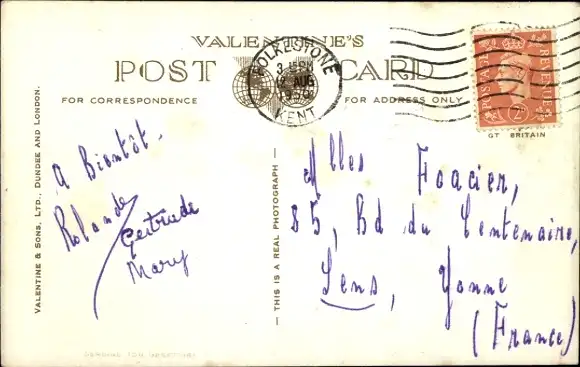 VALENTINE'S
POST CARD
FOR CORRESPONDENCE
FOR ADDRESS ONLY
FOLKESTONE
KENT
AUG
POSTAGE
REVENUE
GT BRITAIN
VALENTINE & SONS, LTD., DUNDEE AND LONDON.
THIS IS A REAL PHOTOGRAPH
A Bientôt.
Rolande
Gertrude
Mary
Mlles Foacier,
85, Bd du Centenaire,
Sens, Yonne
(France)